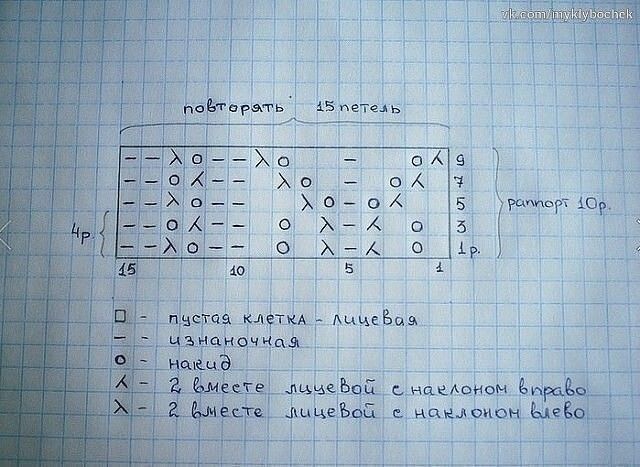 vk.com/myklybochek
повторять 15 петель
— — λ o — — λ o — o ⅄ 9
— — o ⅄ — — λ o — o ⅄ 7
— — λ o — — λ o — o ⅄ 5 раппорт 10р.
4р. — — o ⅄ — — o λ — ⅄ o 3
— — λ o — — o λ — ⅄ o 1р.
15 10 5 1
□ - пустая клетка - лицевая
— - изнаночная
o - накид
⅄ - 2 вместе лицевой с наклоном вправо
λ - 2 вместе лицевой с наклоном влево